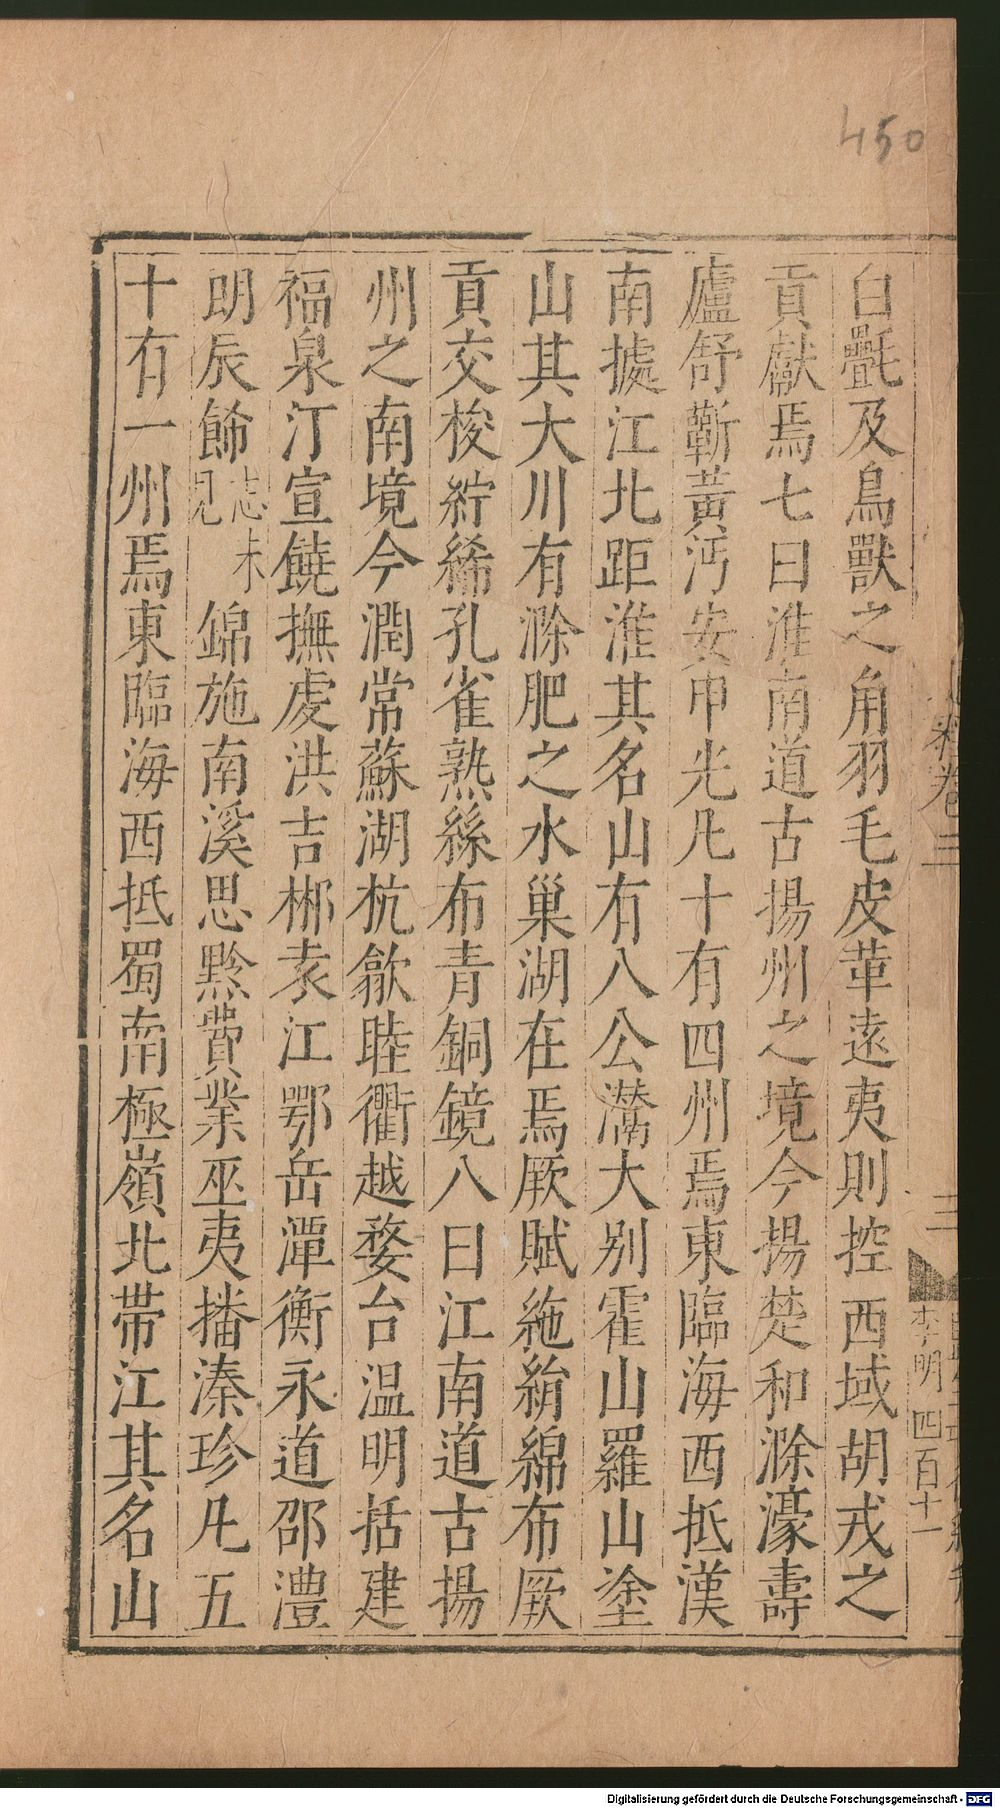 450
白氎及鳥獸之角羽毛皮革遠夷則控西域胡戎之
貢獻焉七曰淮南道古揚州之境今揚楚和滁濠壽
廬舒蘄黃沔安申光凡十有四州焉東臨海西抵漢
南據江北距淮其名山有八公灊大別霍山羅山塗
山其大川有滁肥之水巢湖在焉厥賦絁絹綿布厥
貢交梭紵絺孔雀熟絲布青銅鏡八曰江南道古揚
州之南境今潤常蘇湖杭歙睦衢越婺台温明括建
福泉汀宣饒撫虔洪吉郴袁江鄂岳潭衡永道邵澧
朗辰飾志未見錦施南溪思黔費業巫夷播溱珍凡五
十有一州焉東臨海西抵蜀南極嶺北帶江其名山
卷三
三
李明 四百十一
Digitalisierung gefördert durch die Deutsche Forschungsgemeinschaft - DFG